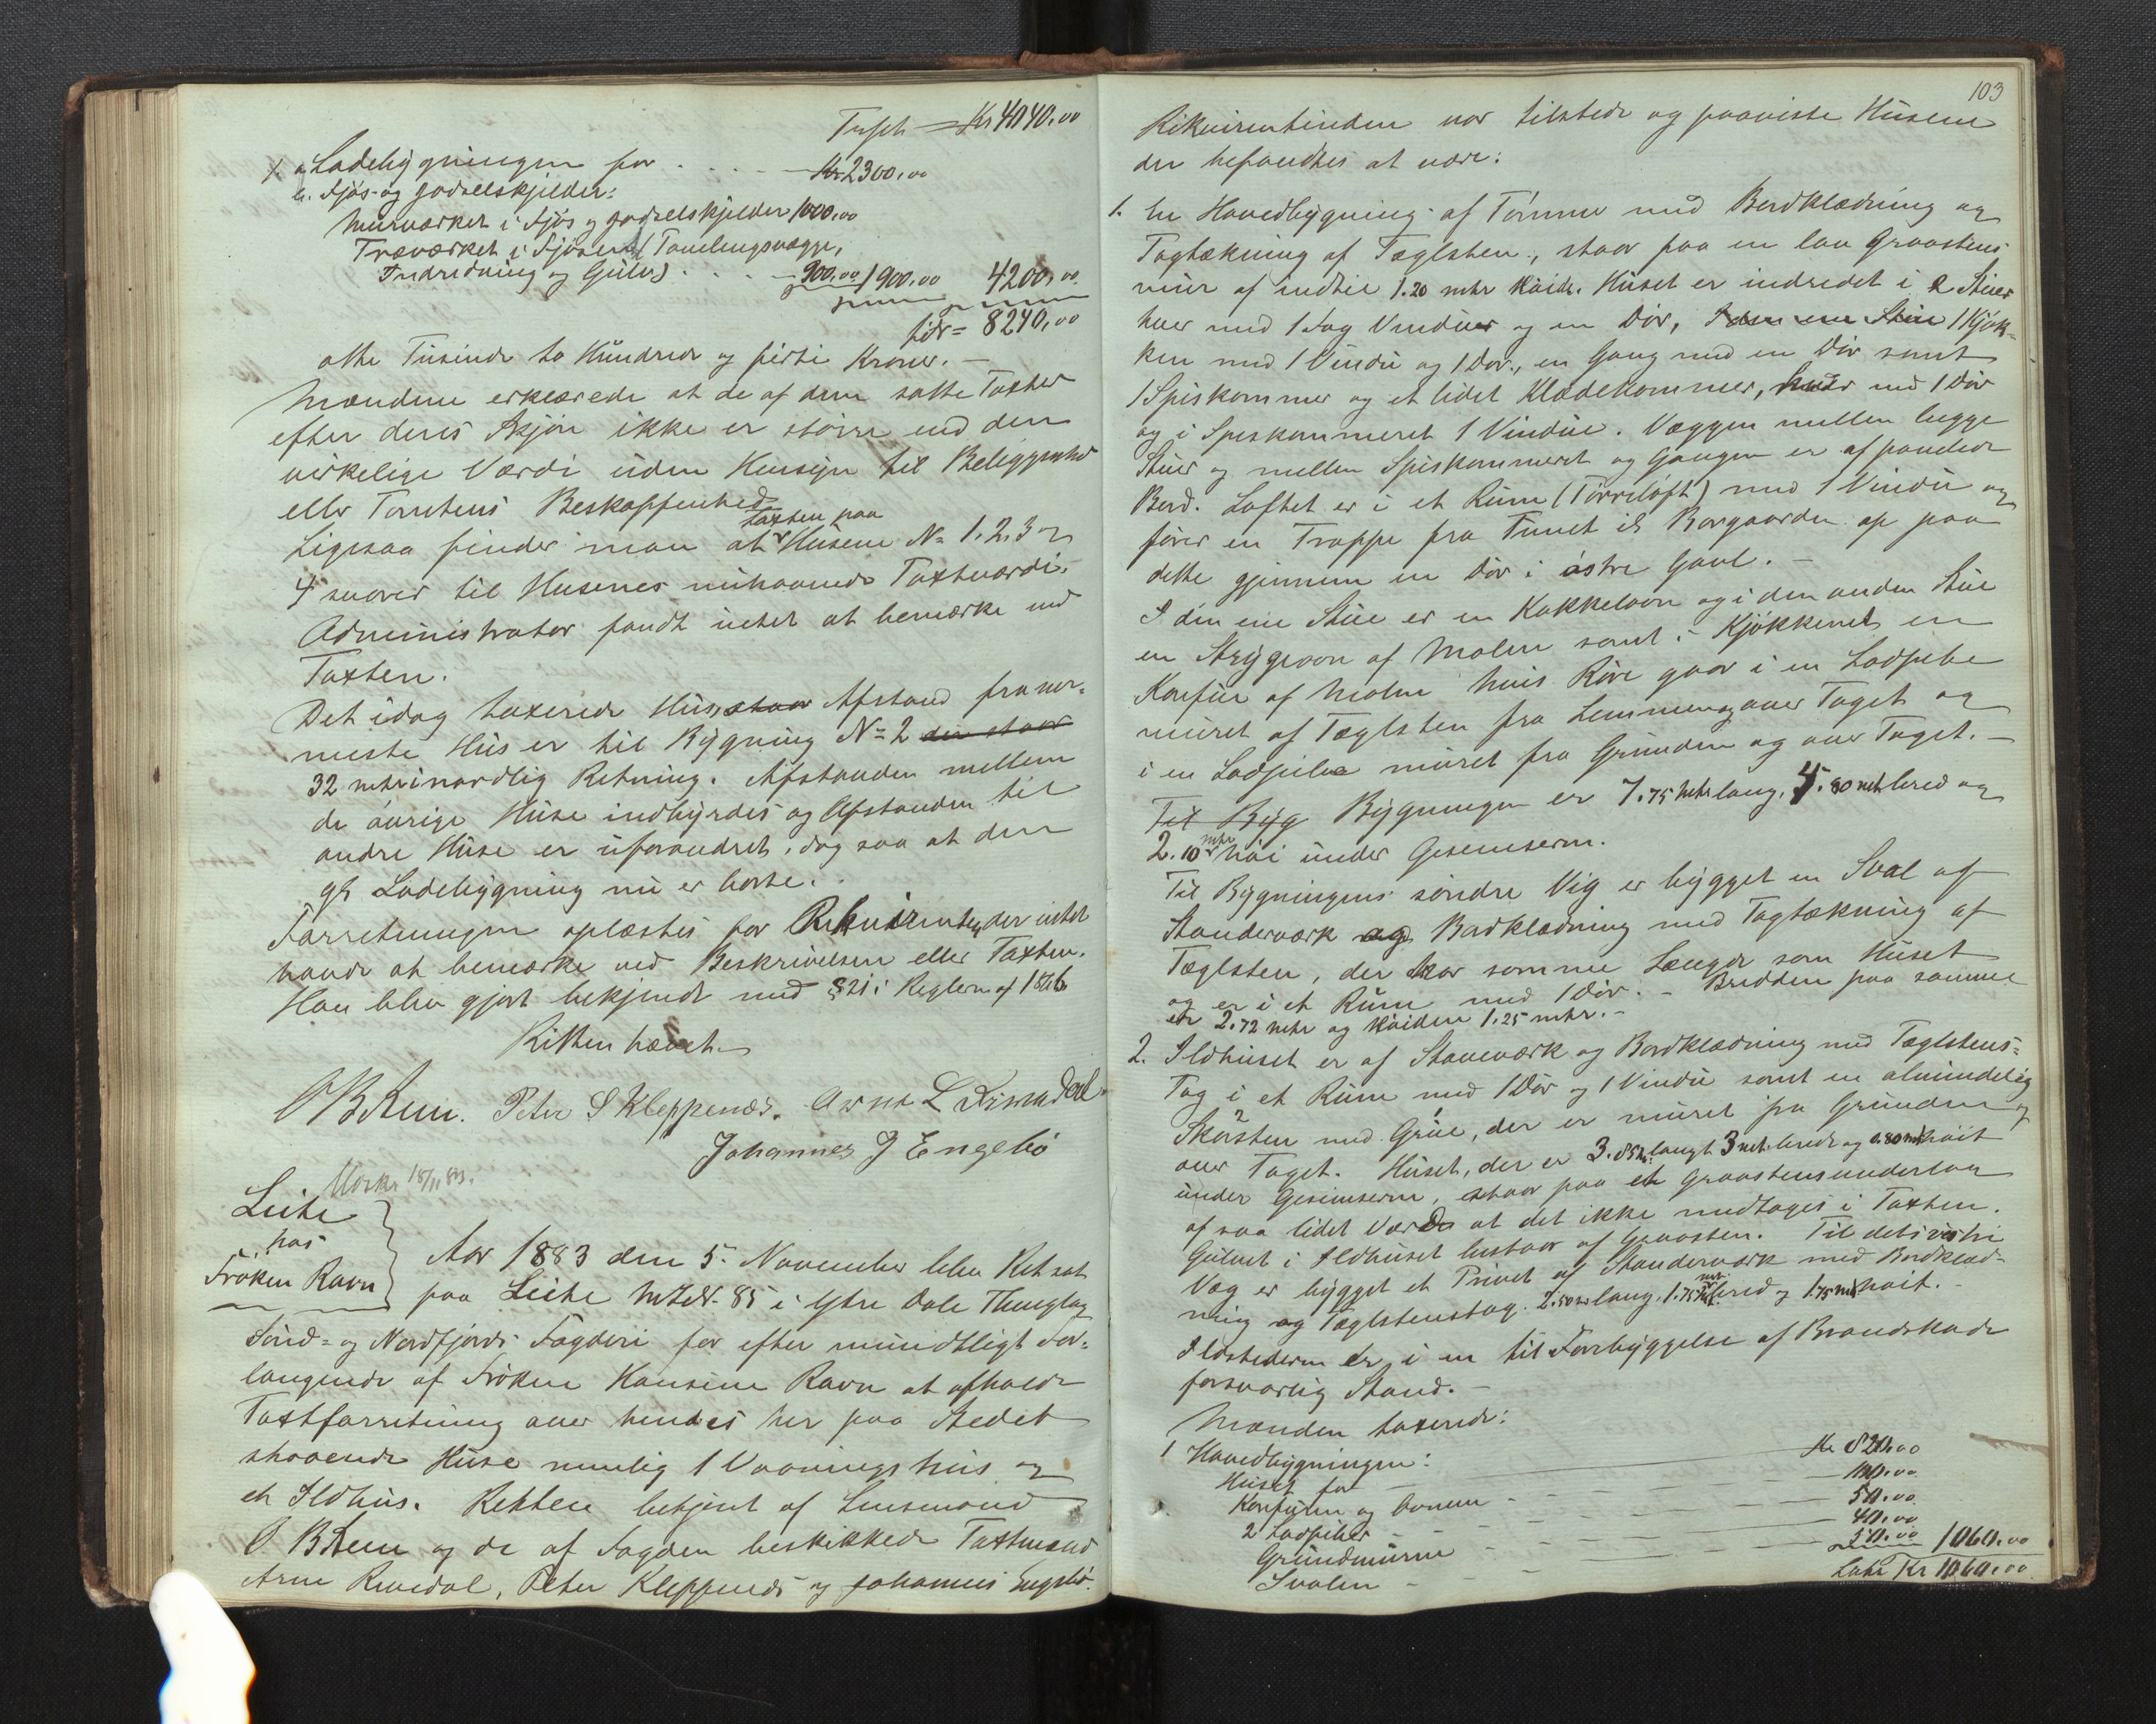 Transp. = Kr 4040.00
1. a Ladebygningen for . . . . Kr 2300.00
b. Fjøs- og gjødselskjelder:
Murværket i Fjøs og gjødselskjelder 1000.00
Træværket i Fjøsen (Tømlingsvægge,
Indredning og Gulv) . . . 900.00 1900.00 4200.00
tilsr = 8240,00
otte Tusinde to Hundrede og firti Kroner. —
Mændene erklærede at de af dem satte Taxter
efter deres Skjøn ikke er større end den
virkelige Værdi uden Hensyn til Beliggenhed
eller Tomtens Beskaffenhed
Ligesaa finder man at taxten paa Husene No 1. 2. 3 og
4 svarer til Husenes nuhavende Taxtværdi.
Administrator fandt intet at bemærke ved
Taxten.
Det idag taxerede Hus, staar Afstand fra nær-
meste Hus er til Bygning No 2 der staar
32 mtr i nordlig Retning. Afstanden mellem
de øvrige Huse indbyrdes og Afstanden til
andre Huse er uforandret, dog saa at den
gl. Ladebygning nu er borte.
Forretningen oplæstes for Rekvirenten, der intet
havde at bemærke ved Beskrivelsen eller Taxten.
Han blev gjort bekjendt med § 21 i Reglem af 1846
Retten hævet.
O B Rem. Peter S Kleppenæs. Arne L Rivedal
Johannes J Engebø
Mærkr 18/11 83.
Leite
hos
Frøken Ravn
Aar 1883 den 5. November blev Ret sat
paa Leite M.No. 85 i Ytre Dale Thinglag
Sønd- og Nordfjords Fogderi for efter mundtligt For-
langende af Frøken Hansine Ravn at afholde
Taxtforretning over hendes her paa Stedet
staaende Huse nemlig 1 Vaaningshus og
et Ildhus. Retten betjent af Lensmand
O B Rem og de af Fogden beskikkede Taxtmænd
Arne Rivedal, Peter Kleppenæs og Johannes Engebø.
103
Rekvirentinden var tilstede og paaviste Husene
der befandtes at være:
1. En Hovedbygning af Tømmer med Bordklædning og
Tagtækning af Tæglsten, staar paa en lav Graastens-
mur af indtil 1.20 mtr Høide. Huset er indredet i 2 Stuer
hver med 1 Fag Vinduer og en Dør, 1 Kjøk-
ken med 1 Vindu og 1 Dør, en Gang med en Dør samt
1 Spiskammer og et lidet Klædekammer, hver med 1 Dør
og i Spiskammeret 1 Vindue. Væggen mellem begge
Stuer og mellem Spiskammeret og Gangen er af panelede
Bord. Loftet er i et Rum (Tørreloft) med 1 Vindu og
fører en Trappe fra Tunet il Borgaarden op paa
dette gjennem en Dør i østre Gavl. —
I den ene Stue er en Kakkelovn og i den anden Stue
en Strygeovn af Malm samt i Kjøkkenet en
Komfur af Malm hvis Røre gaar i en Ladpibe
muret af Tæglsten fra Lemmen og over Taget og
i en Ladpibe muret fra Grunden og over Taget. —
Til Byg Bygningen er 7.75 mtr lang, 5.80 mtr bred og
2.10 mtr høi under Gesimserne.
Til Bygningens søndre Væg er bygget en Sval af
Standerværk og Bordklædning med Tagtækning af
Tæglsten, der har samme Længde som Huset
og er i et Rum med 1 Dør. — Bredden paa samme
er 2.72 mtr og Høiden 1.25 mtr. —
2. Ildhuset er af Stavværk og Bordklædning med Tæglstens-
Tag i et Rum med 1 Dør og 1 Vindu samt en almindelig
Skorsten med Grue, der er muret fra Grunden og
over Taget. Huset, der er 3.85 m langt 3 mtr bredt og 1.80 mtr høit
under Gesimserne, staar paa et Graastensunderlag
af saa lidet Værd at det ikke medtages i Taxten.
Gulvet i Ildhuset bestaar af Graasten. Til dets vestre
Væg er bygget et Privet af Standerværk med Bordklæd-
ning og Tæglstenstag 2.50 m lang, 1.75 mtr bred og 1.75 mtr høit. —
Ildstederne er i en til Forebyggelse af Brandskade
forsvarlig Stand. —
Mænden taxerede:
1 Hovedbygningen:
Huset for — Kr 820.00
Komfuren og Ovnene — 100.00
2 Ladpiber — 50.00
Grundmuren — 40.00
Svalen — 50.00 1060.00
Latr Kr 1060.00